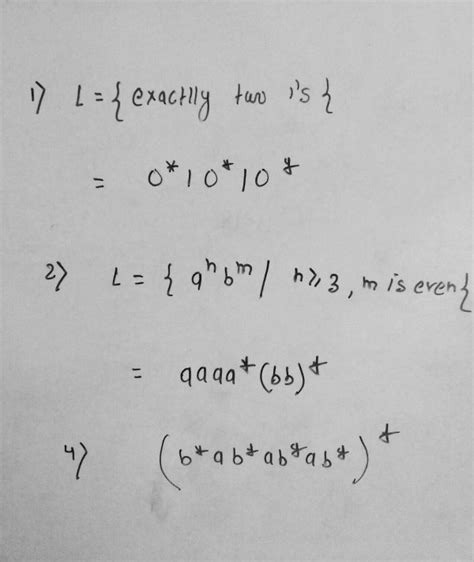 1) L = { exactlly two 1's {
= 0*10*10*
2) L = { a^n b^m / n ≥ 3, m is even {
= aaaa*(bb)*
4) (b*ab*ab*ab*)*